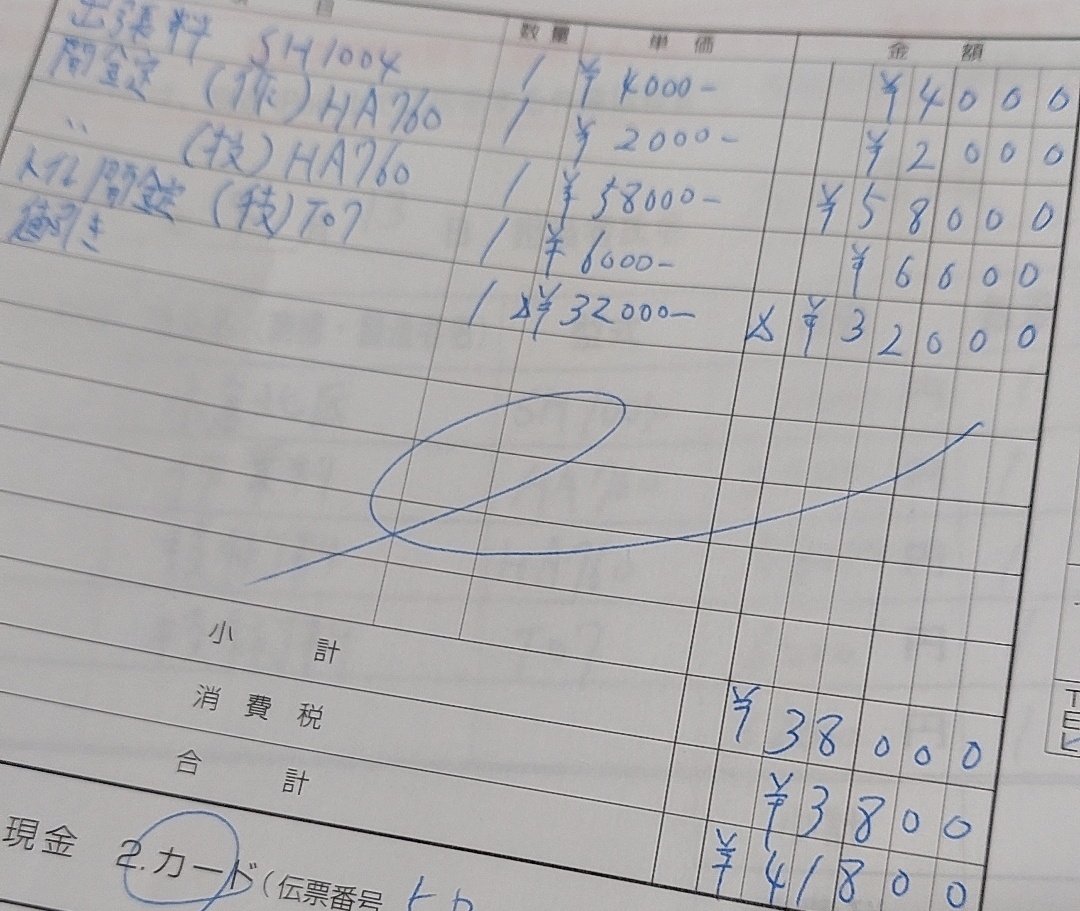 目 数量 単価 金額
出張料 SH1004 1 ¥4000- ¥4000
開錠 (作) HA760 1 ¥2000- ¥2000
〃 (技) HA760 1 ¥58000- ¥58000
開錠 (技) T07 1 ¥6000- ¥6000
値引き 1 ¥32000- ¥32000
小計 ¥38000
消費税 ¥3800
合計 ¥41800
現金 2.カード(伝票番号